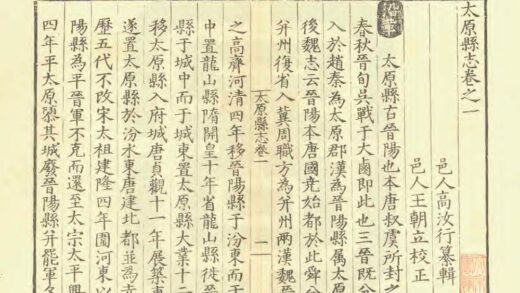 太原縣志卷之一
邑人高汝行纂輯
邑人王朝立校正
太原縣古晉陽也本唐叔虞所封之
春秋晉荀吳戰于大鹵即此也三晉既分
入於趙秦為太原郡漢為晉陽縣属太原
後魏志云晉陽本唐國堯始都於此舜分
并州復省入冀周職方為并州兩漢魏晉
太原縣志卷一
一
之高齊河清四年移晉陽縣于汾東而于
中置龍山縣隋開皇十年省龍山縣徙晉
縣于城中而于城東置太原縣大業十二
移太原縣入府城唐貞觀十一年展築東
遂置太原縣於汾水東唐建北都並為
歷五代不改宋太祖建隆四年圍河東以
陽縣為平晉軍不克而還至太宗太平興
四年平太原隳其城廢晉陽縣并罷軍